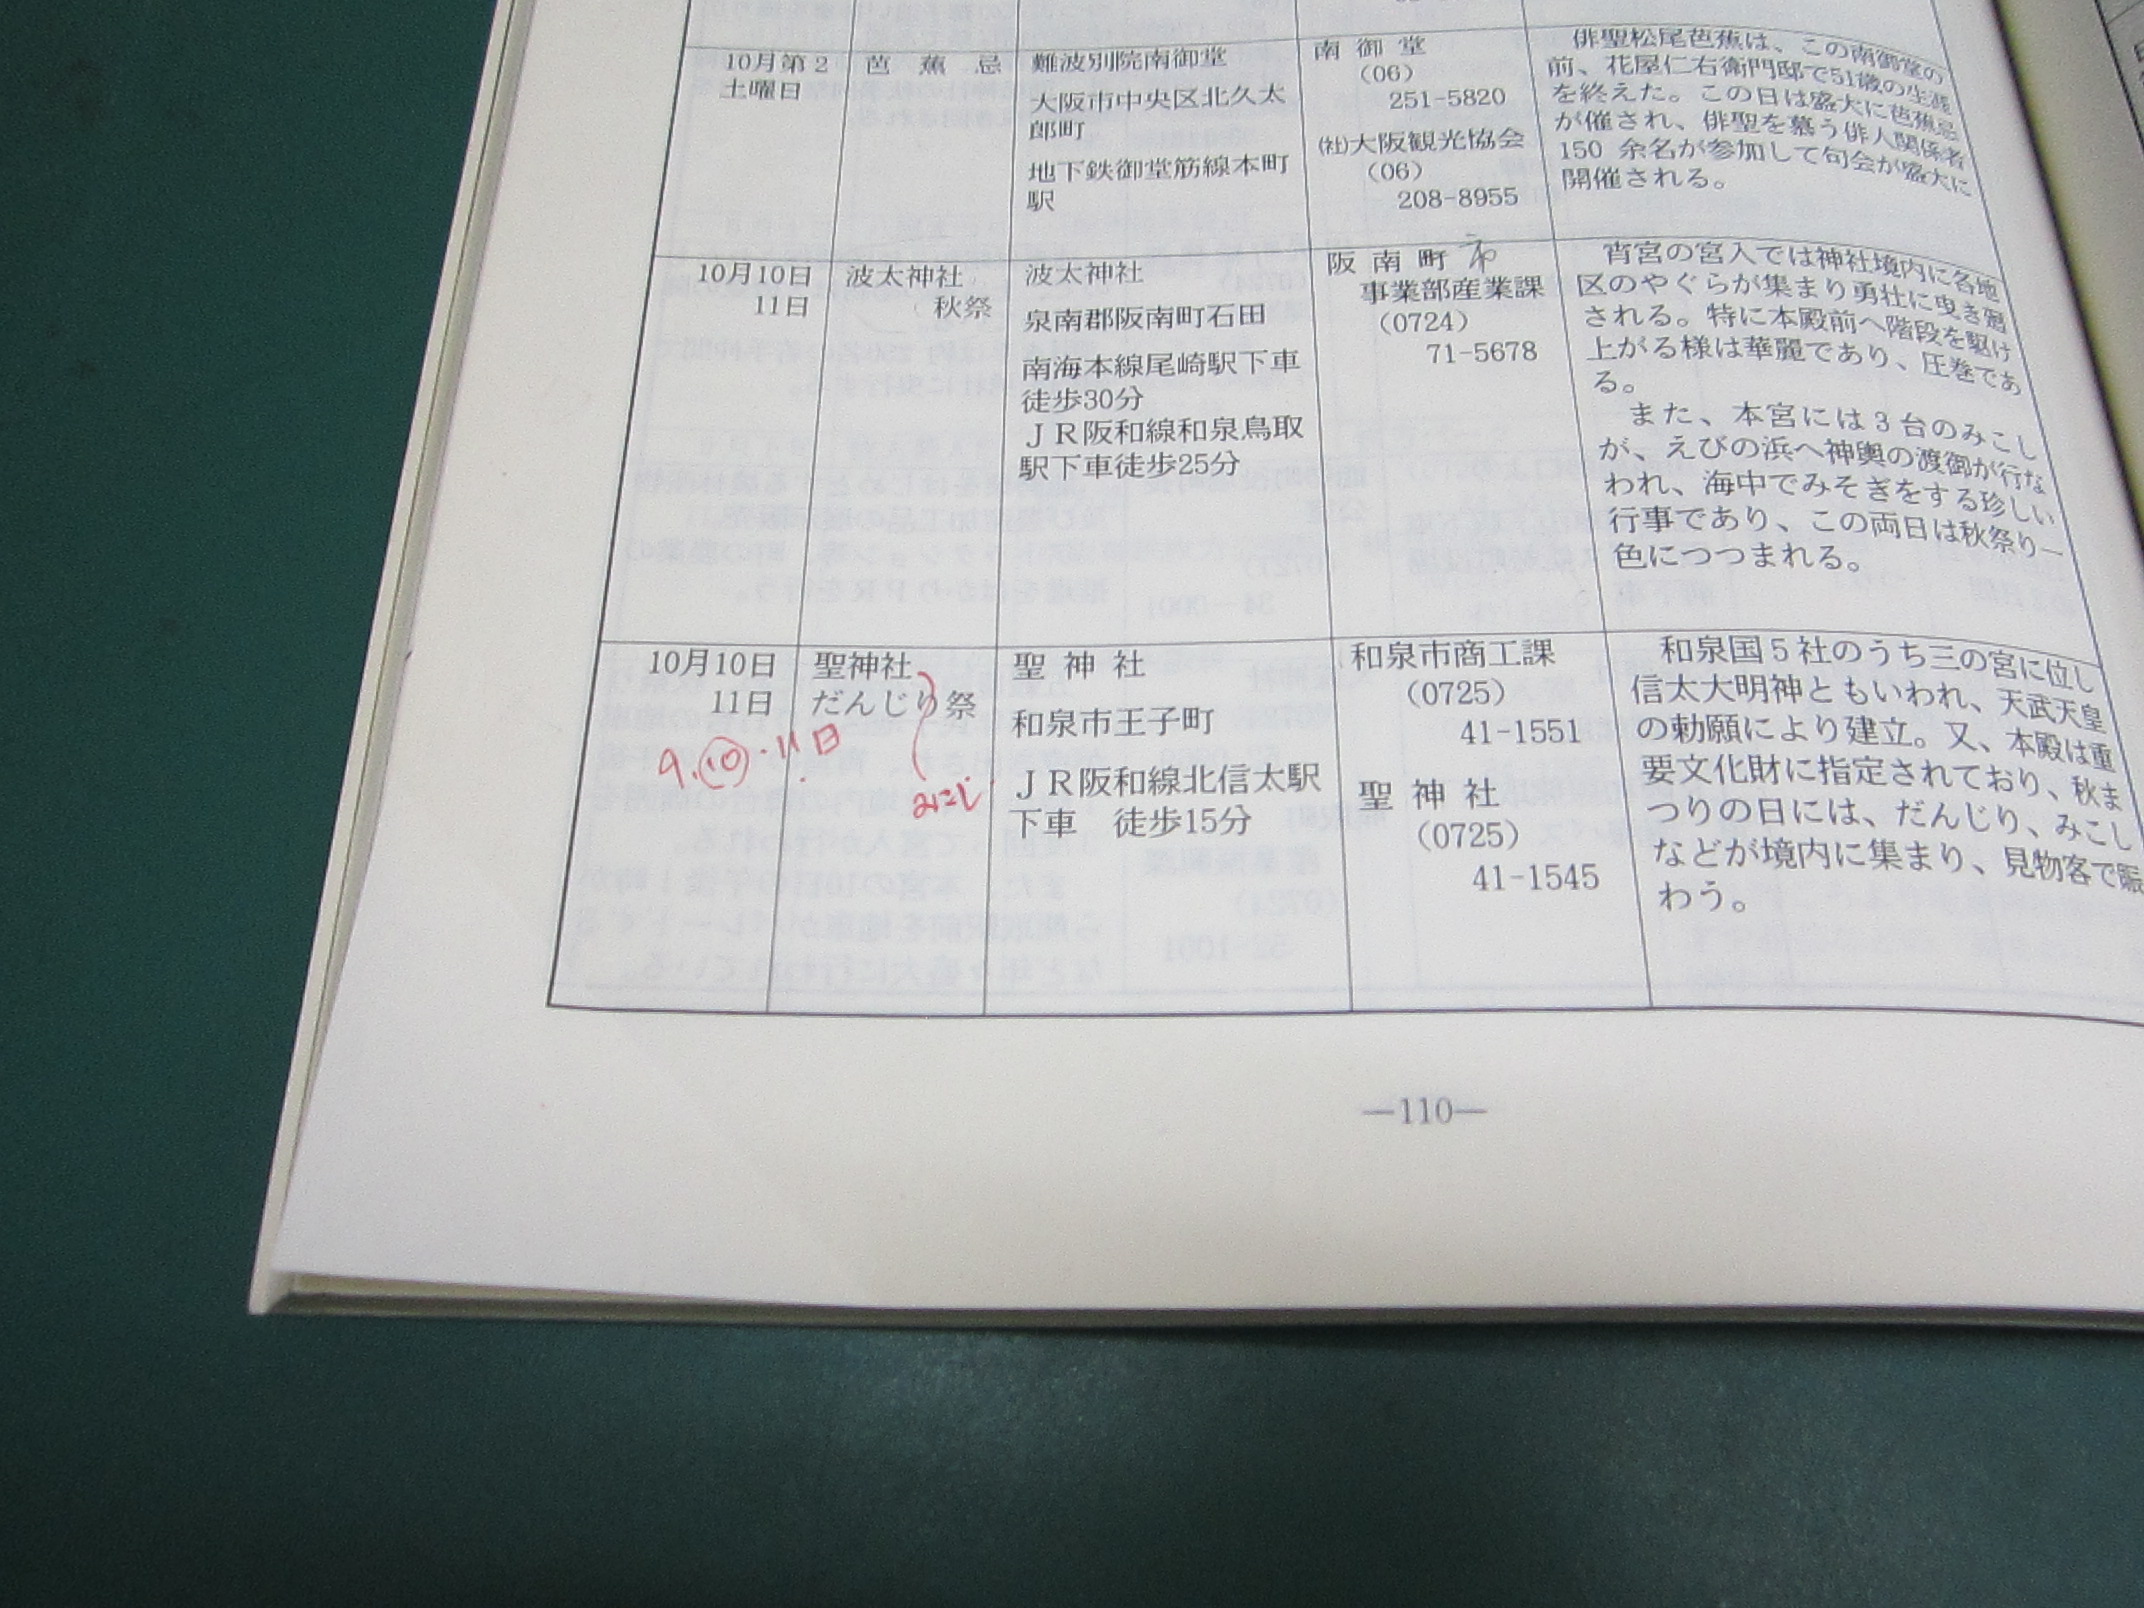 10月第2
土曜日
芭蕉忌
難波別院南御堂
大阪市中央区北久太
郎町
地下鉄御堂筋線本町
駅
南御堂
(06)
251-5820
(社)大阪観光協会
(06)
208-8955
俳聖松尾芭蕉は、この南御堂の
前、花屋仁右衛門邸で51歳の生涯
を終えた。この日は盛大に芭蕉忌
が催され、俳聖を慕う俳人関係者
150余名が参加して句会が盛大に
開催される。
10月10日
11日
波太神社
秋祭
波太神社
泉南郡阪南町石田
南海本線尾崎駅下車
徒歩30分
JR阪和線和泉鳥取
駅下車徒歩25分
阪南町 市
事業部産業課
(0724)
71-5678
宵宮の宮入では神社境内に各地
区のやぐらが集まり勇壮に曳き廻
される。特に本殿前へ階段を駆け
上がる様は華麗であり、圧巻であ
る。
また、本宮には3台のみこし
が、えびの浜へ神輿の渡御が行な
われ、海中でみそぎをする珍しい
行事であり、この両日は秋祭り一
色につつまれる。
10月10日
11日
聖神社
だんじり祭
9.10・11日
みこし
聖神社
和泉市王子町
JR阪和線北信太駅
下車 徒歩15分
和泉市商工課
(0725)
41-1551
聖神社
(0725)
41-1545
和泉国5社のうち三の宮に位し
信太大明神ともいわれ、天武天皇
の勅願により建立。又、本殿は重
要文化財に指定されており、秋ま
つりの日には、だんじり、みこし
などが境内に集まり、見物客で賑
わう。
—110—